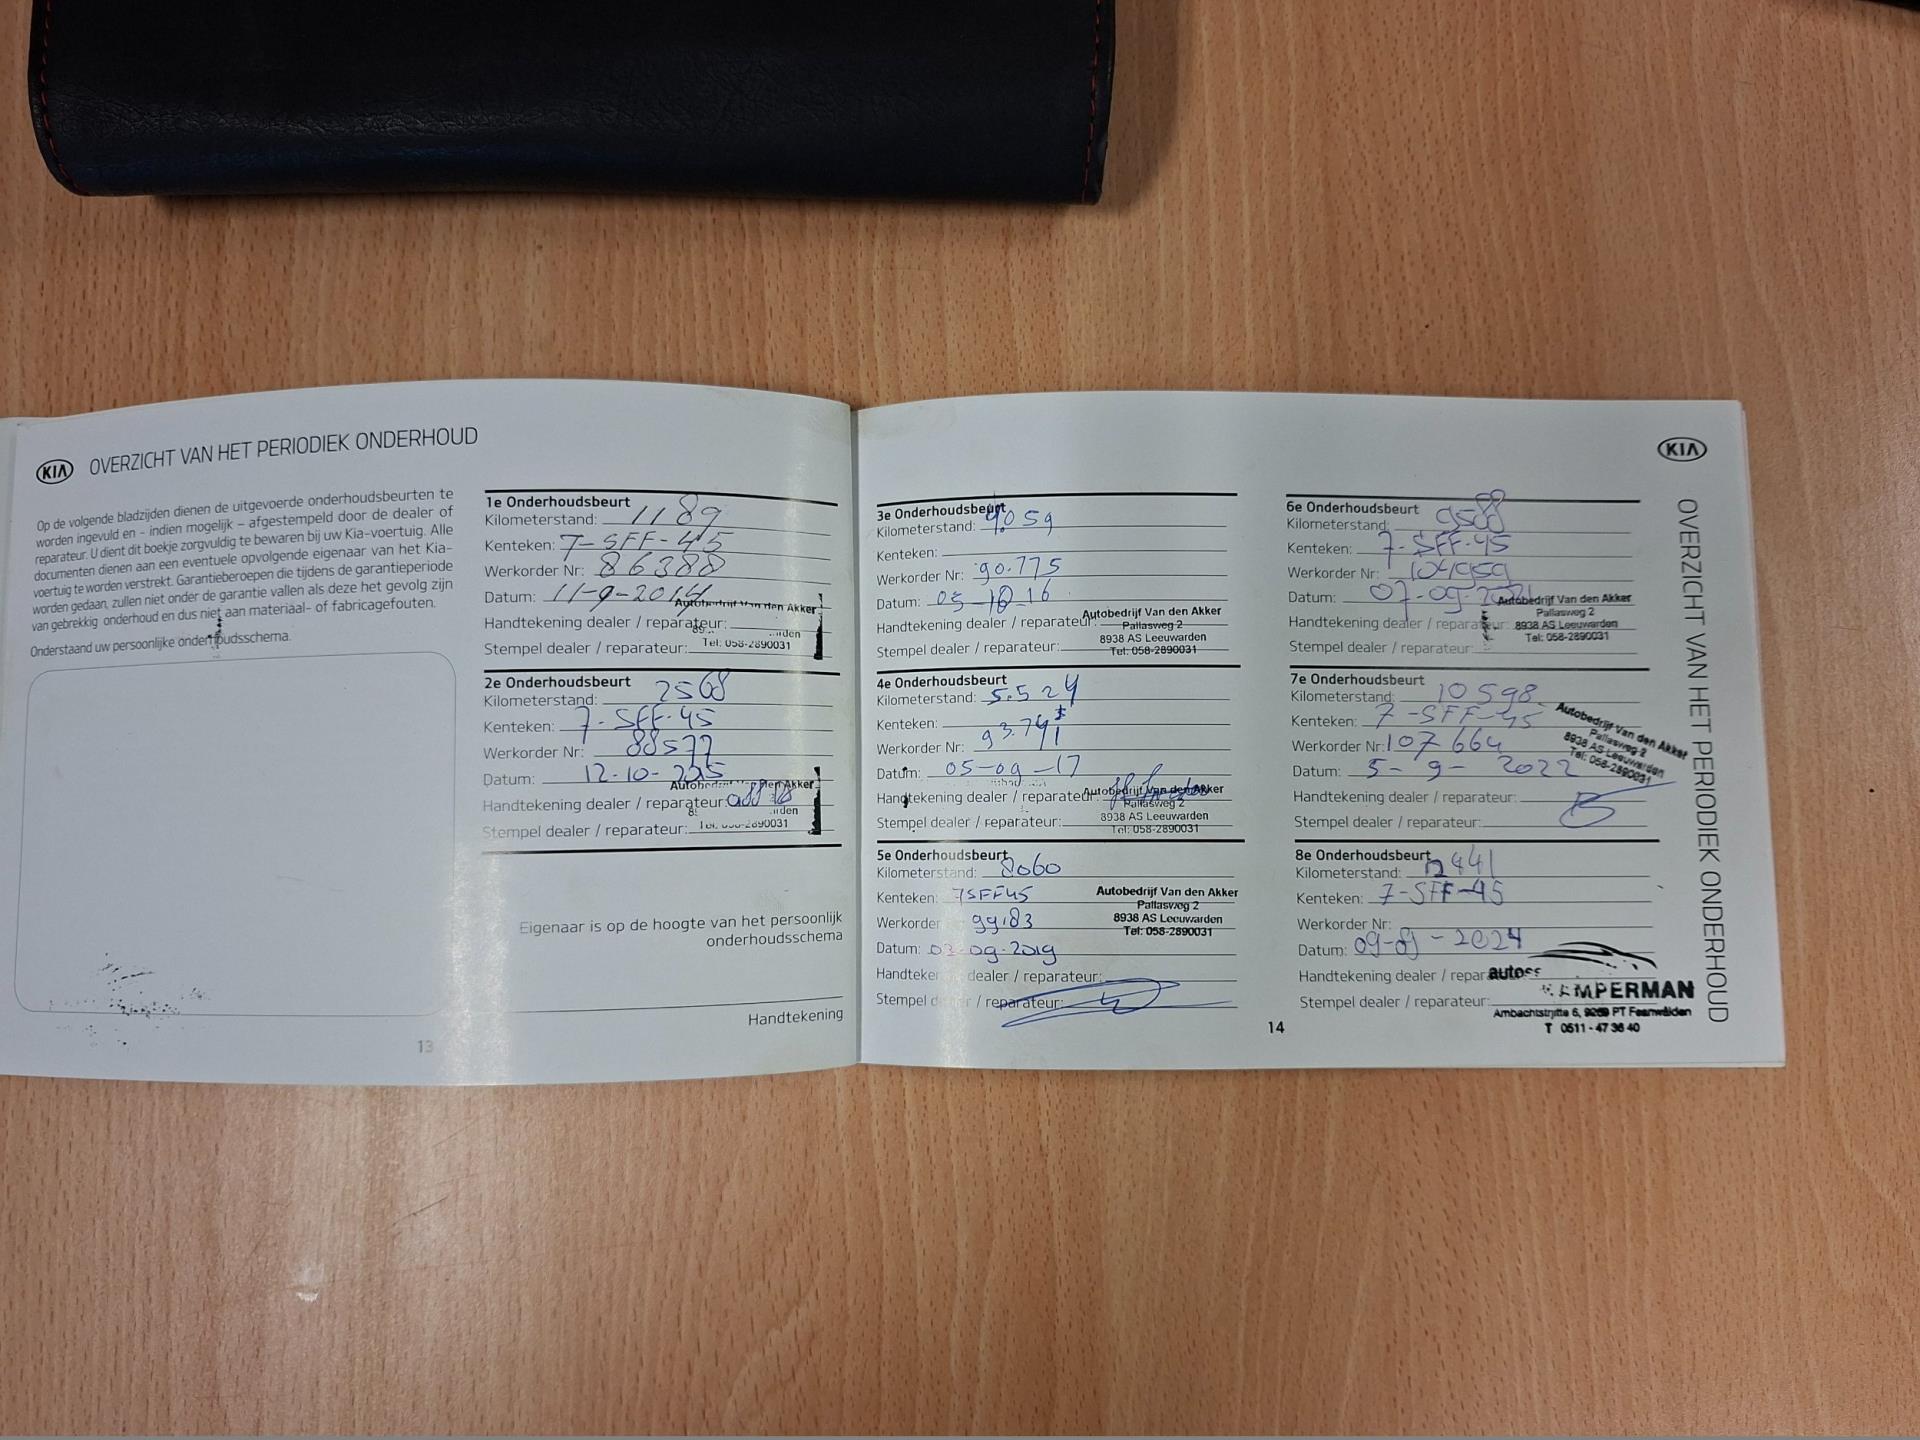 KIA OVERZICHT VAN HET PERIODIEK ONDERHOUD
Op de volgende bladzijden dienen de uitgevoerde onderhoudsbeurten te
worden ingevuld en - indien mogelijk – afgestempeld door de dealer of
reparateur. U dient dit boekje zorgvuldig te bewaren bij uw Kia-voertuig. Alle
documenten dienen aan een eventuele opvolgende eigenaar van het Kia-
voertuig te worden verstrekt. Garantieberoepen die tijdens de garantieperiode
worden gedaan, zullen niet onder de garantie vallen als deze het gevolg zijn
van gebrekkig onderhoud en dus niet aan materiaal- of fabricagefouten.
Onderstaand uw persoonlijke onderhoudsschema.
13
1e Onderhoudsbeurt
Kilometerstand: 1189
Kenteken: 7-SFF-45
Werkorder Nr: 86388
Datum: 11-9-2014
Autobedrijf Van den Akker
Handtekening dealer / reparateur:
Tel: 058-2890031
Stempel dealer / reparateur:
2e Onderhoudsbeurt
Kilometerstand: 2568
Kenteken: 7-SFF-45
Werkorder Nr: 88577
Datum: 12-10-2015
Handtekening dealer / reparateur:
Stempel dealer / reparateur:
Eigenaar is op de hoogte van het persoonlijk
onderhoudsschema
Handtekening
3e Onderhoudsbeurt
Kilometerstand: 4059
Kenteken:
Werkorder Nr: 90.775
Datum: 05-10-16
Autobedrijf Van den Akker
Handtekening dealer / reparateur:
Pallasweg 2
8938 AS Leeuwarden
Stempel dealer / reparateur:
Tel: 058-2890031
4e Onderhoudsbeurt
Kilometerstand: 5.524
Kenteken:
Werkorder Nr: 93.741
Datum: 05-09-17
Autobedrijf Van den Akker
Handtekening dealer / reparateur:
Pallasweg 2
8938 AS Leeuwarden
Stempel dealer / reparateur:
Tel: 058-2890031
5e Onderhoudsbeurt
Kilometerstand: 8060
Kenteken: 7SFF45
Autobedrijf Van den Akker
Pallasweg 2
Werkorder 99183
8938 AS Leeuwarden
Tel: 058-2890031
Datum: 03-09-2019
Handtekening dealer / reparateur:
Stempel dealer / reparateur:
14
KIA
6e Onderhoudsbeurt
Kilometerstand: 9588
Kenteken: 7-SFF-45
Werkorder Nr: 104959
Datum: 07-09-2021
Autobedrijf Van den Akker
Pallasweg 2
Handtekening dealer / reparateur:
8938 AS Leeuwarden
Tel: 058-2890031
Stempel dealer / reparateur:
7e Onderhoudsbeurt
Kilometerstand: 10598
Kenteken: 7-SFF-45
Werkorder Nr: 107664
Datum: 5-9-2022
Autobedrijf Van den Akker
Pallasweg 2
8938 AS Leeuwarden
Tel: 058-2890031
Handtekening dealer / reparateur:
Stempel dealer / reparateur:
8e Onderhoudsbeurt
Kilometerstand: 12441
Kenteken: 7-SFF-45
Werkorder Nr:
Datum: -2024
Handtekening dealer /
Stempel dealer / reparateur:
KAMPERMAN
T 0511 - 47 36 40
OVERZICHT VAN HET PERIODIEK ONDERHOUD